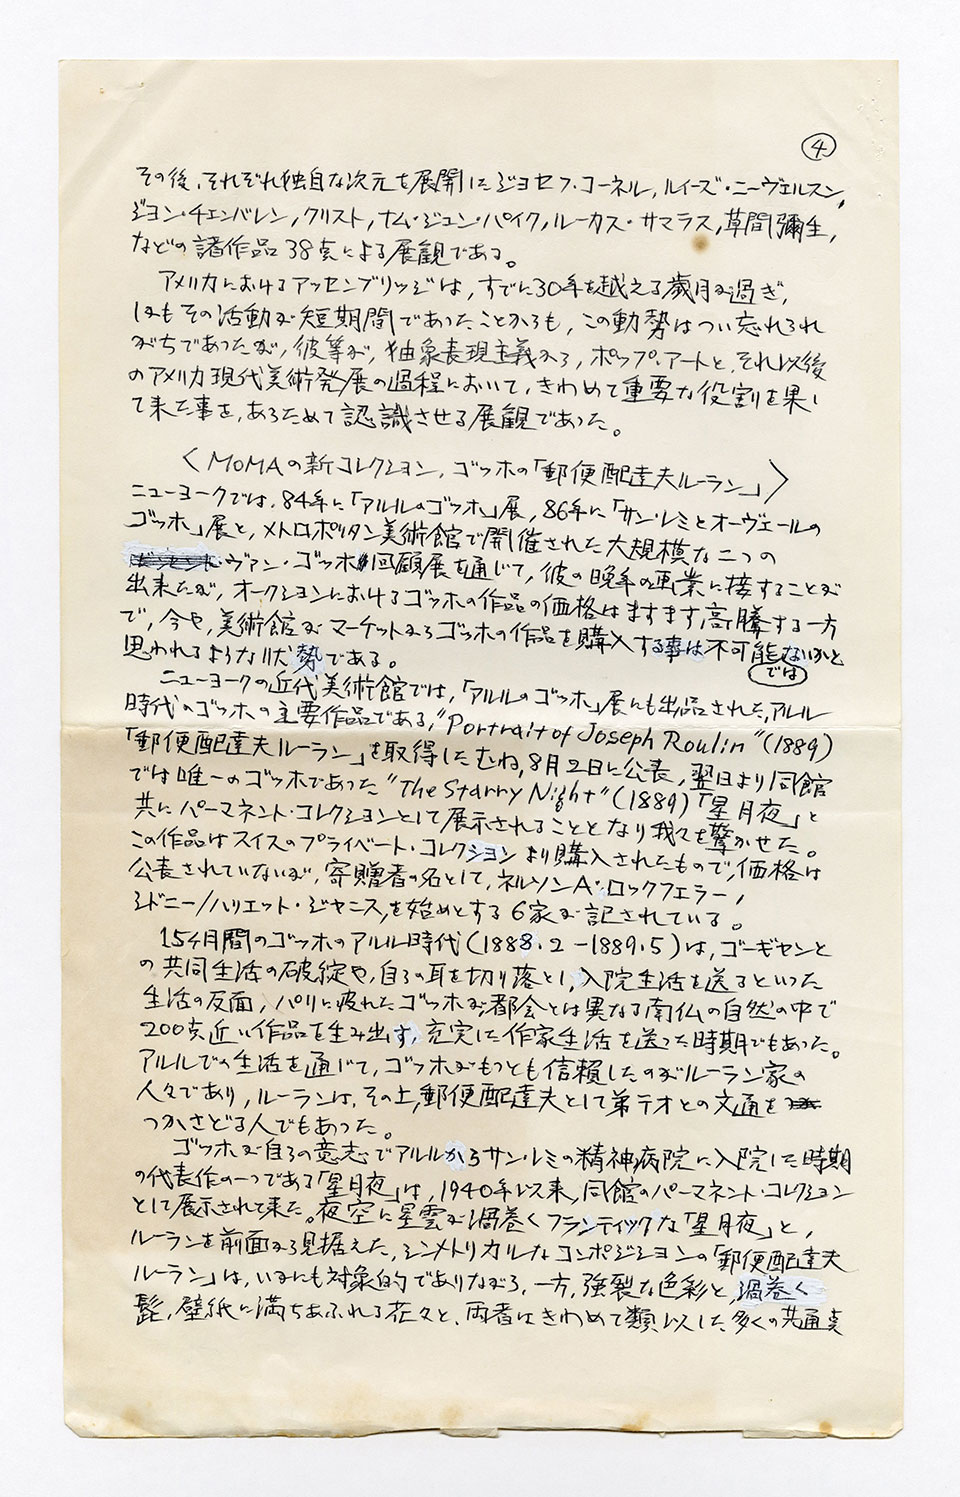 ④
その後、それぞれ独自な次元を展開したジョセフ・コーネル, ルイーズ・ニーヴェルスン,
ジョン・チェンバレン, クリスト, ナム・ジュン・パイク, ルーカス・サマラス, 草間彌生,
などの諸作品38点による展観である。
アメリカにおけるアッセンブリッジは, すでに30年を越える歳月が過ぎ,
しかもその活動が短期間であったことからも, この動勢はつい忘れられ
がちであったが, 彼等が, 抽象表現主義から, ポップ・アートと, それ以後
のアメリカ現代美術発展の過程において, きわめて重要な役割を果し
て来た事を, あらためて認識させる展観であった。
〈MOMAの新コレクション, ゴッホの「郵便配達夫ルーラン」〉
ニューヨークでは, 84年に「アルルのゴッホ」展, 86年に「サン・レミとオーヴェールの
ゴッホ」展と, メトロポリタン美術館で開催された大規模な二つの
ヴァン・ゴッホ回顧展を通じて, 彼の晩年の画業に接することが
出来たが, オークションにおけるゴッホの作品の価格はますます高騰する一方
で, 今や, 美術館がマーケットからゴッホの作品を購入する事は不可能ではないかと
思われるような状勢である。
ニューヨークの近代美術館では, 「アルルのゴッホ」展にも出品された, アルル
時代のゴッホの主要作品である, "Portrait of Joseph Roulin" (1889)
「郵便配達夫ルーラン」を取得したむね, 8月2日に公表, 翌日より同館
では唯一のゴッホであった "The Starry Night" (1889)「星月夜」と
共にパーマネント・コレクションとして展示されることとなり我々を驚かせた。
この作品はスイスのプライベート・コレクションより購入されたもので, 価格は
公表されていないが, 寄贈者の名として, ネルソンA・ロックフェラー,
シドニー/ハリエット・ジャニス, を始めとする6家が記されている。
15ヶ月間のゴッホのアルル時代(1888.2-1889.5)は, ゴーギャンと
の共同生活の破綻や, 自らの耳を切り落とし, 入院生活を送るといった
生活の反面, パリに疲れたゴッホが, 都会とは異なる南仏の自然の中で
200点近い作品を生み出す, 充実した作家生活を送った時期でもあった。
アルルでの生活を通じて, ゴッホがもっとも信頼したのがルーラン家の
人々であり, ルーランは, その上, 郵便配達夫として弟テオとの文通を
つかさどる人でもあった。
ゴッホが自らの意志でアルルからサン・レミの精神病院に入院した時期
の代表作の一つである「星月夜」は, 1940年以来, 同館のパーマネント・コレクション
として展示されて来た。夜空に星雲が渦巻くフランティックな「星月夜」と,
ルーランを前面から見据えた, シンメトリカルなコンポジションの「郵便配達夫
ルーラン」は, いかにも対象的でありながら, 一方, 強裂な色彩と, 渦巻く
髭, 壁紙に満ちあふれる花々と, 両者はきわめて類似した, 多くの共通点